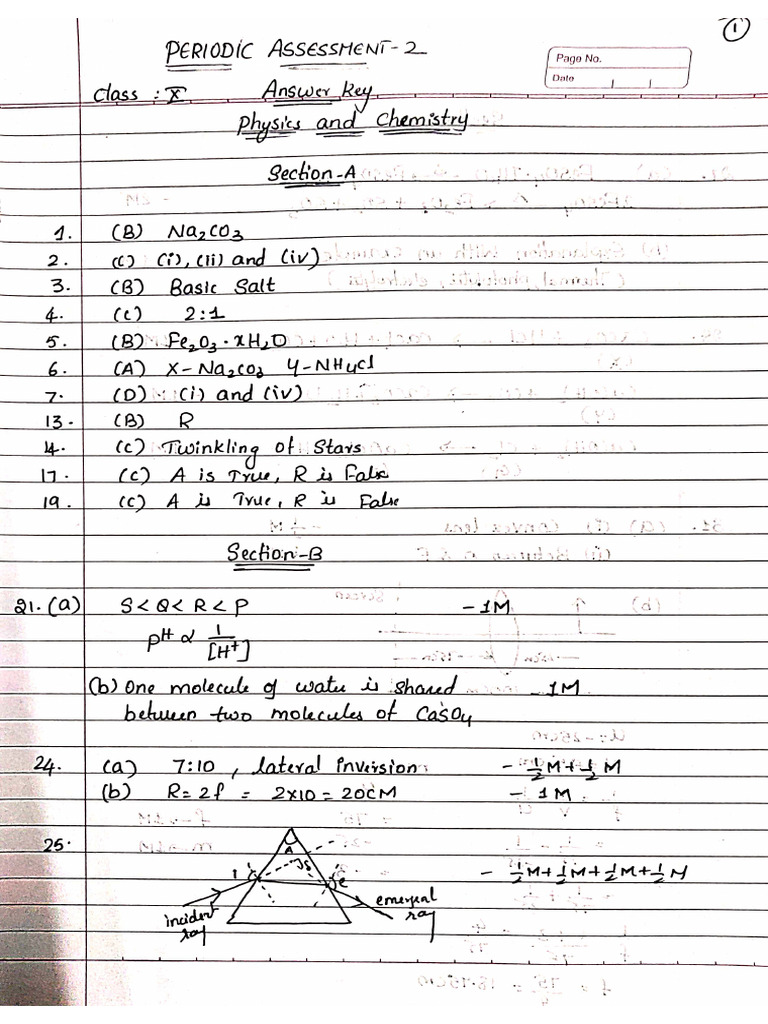 1
PERIODIC ASSESSMENT-2
Page No.
Date
Class : X Answer key
Physics and Chemistry
Section-A
1. (B) Na2CO3
2. (C) (i), (ii) and (iv)
3. (B) Basic Salt
4. (C) 2:1
5. (B) Fe2O3·xH2O
6. (A) X-Na2CO3 Y-NH4Cl
7. (D) (i) and (iv)
13. (B) R
14. (C) Twinkling of Stars
17. (C) A is True, R is False
19. (C) A is True, R is False
Section-B
21.(a) S<Q<R<P -1M
pH ∝ 1/[H+]
(b) One molecule of water is shared -1M
between two molecules of CaSO4
24. (a) 7:10, lateral inversion - 1/2M+1/2M
(b) R=2f = 2x10=20cM - 1M
25. - 1/2M+1/2M+1/2M+1/2M
A
i e
incident ray
emergent ray